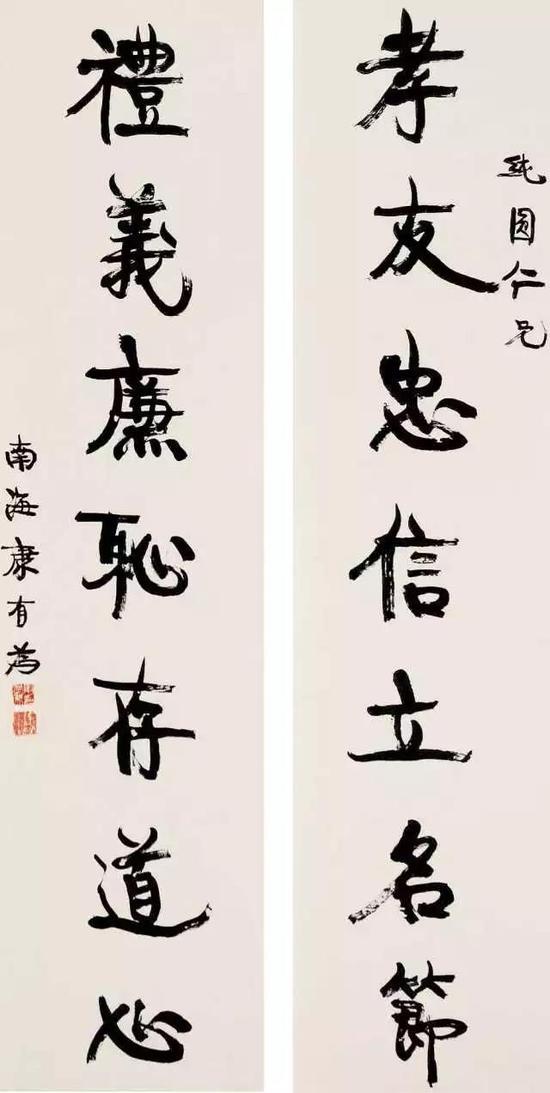 孝友忠信立名節
純圓仁兄
禮義廉恥存道心
南海康有為